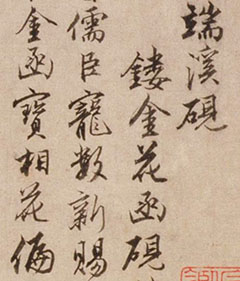 端溪硯
鏤金花函硯
儒臣寵數新賜
金函寶相花偏